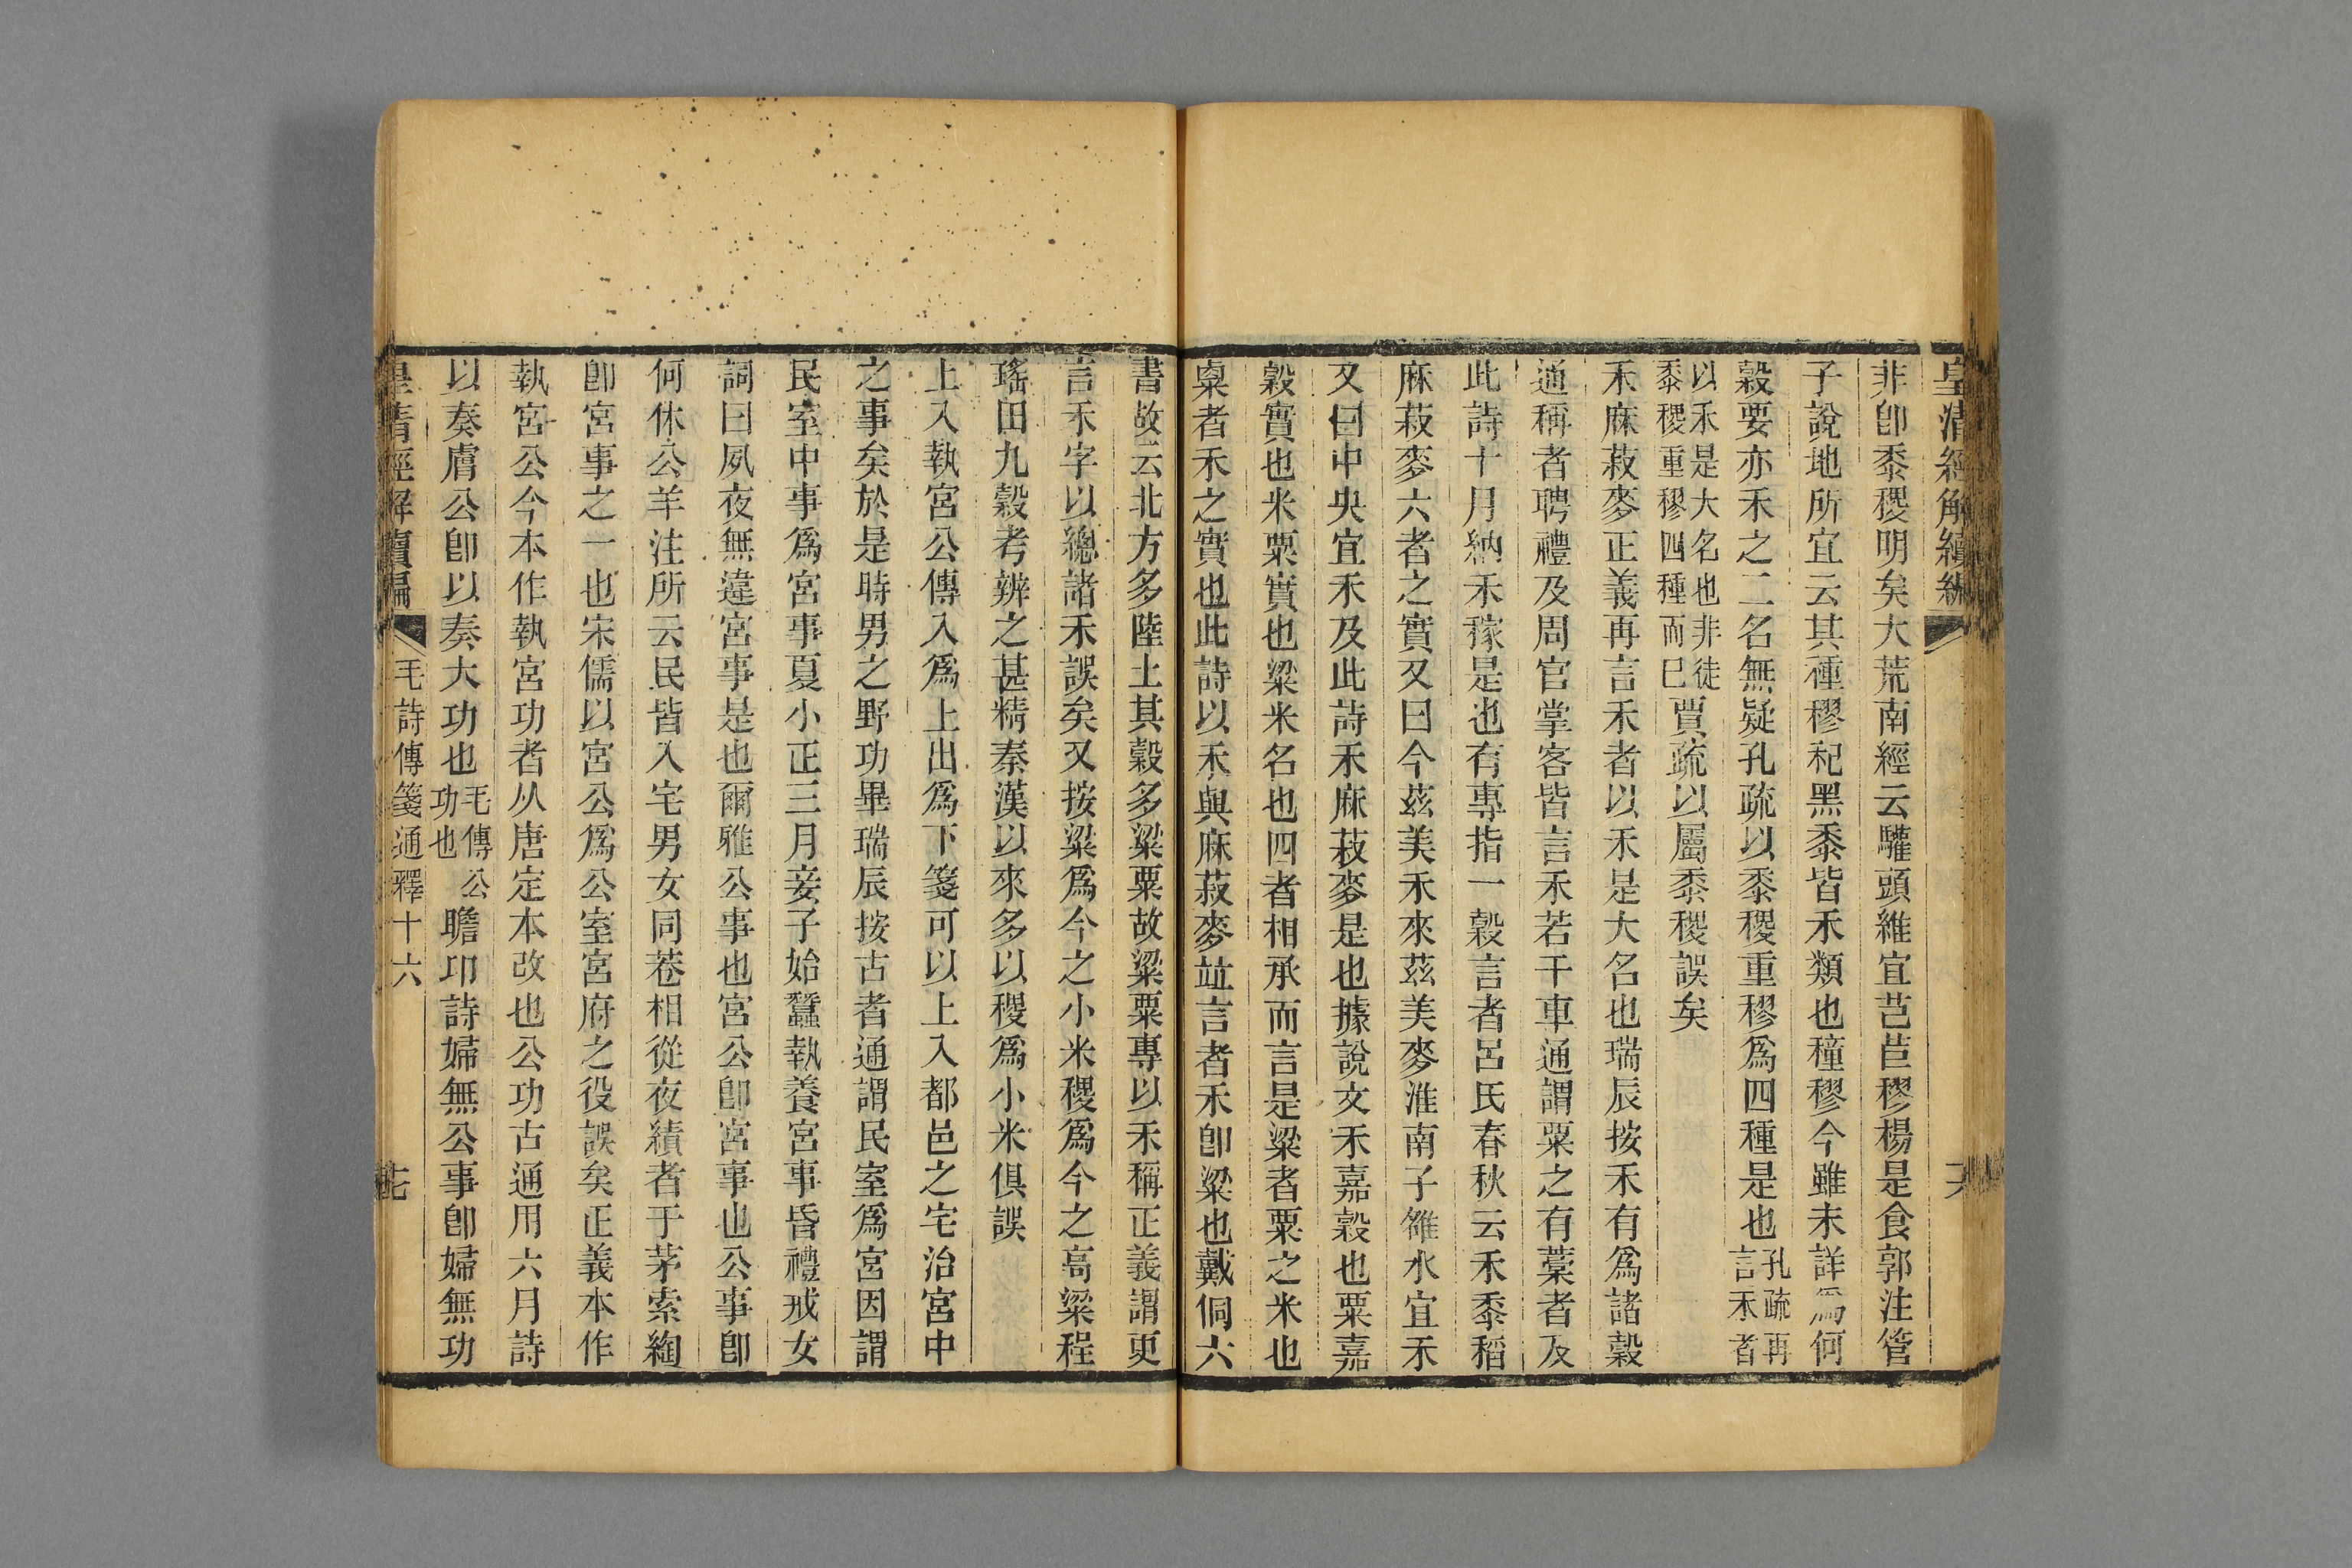 皇清經解續編
非卽黍稷明矣大荒南經云驩頭維宜芑苣穋楊是食郭注管
子說地所宜云其種穋秬黑黍皆禾類也穜穋今雖未詳爲何
穀要亦禾之二名無疑孔疏以黍稷重穋爲四種是也孔疏再言禾者
以禾是大名也非徒黍稷重穋四種而已賈疏以屬黍稷誤矣
禾麻菽麥正義再言禾者以禾是大名也瑞辰按禾有爲諸穀
通稱者聘禮及周官掌客皆言禾若干車通謂粟之有藁者及
此詩十月納禾稼是也有專指一穀言者呂氏春秋云禾黍稻
麻菽麥六者之實又曰今茲美禾來茲美麥淮南子雒水宜禾
又曰中央宜禾及此詩禾麻菽麥是也據說文禾嘉穀也粟嘉
穀實也米粟實也粱米名也四者相承而言是粱者粟之米也
稟者禾之實也此詩以禾與麻菽麥竝言者禾卽粱也戴侗六
書故云北方多陸土其穀多粱粟故粱粟專以禾稱正義謂更
言禾字以總諸禾誤矣又按粱爲今之小米稷爲今之高粱程
瑤田九穀考辨之甚精秦漢以來多以稷爲小米俱誤
上入執宮公傳入爲上出爲下箋可以上入都邑之宅治宮中
之事矣於是時男之野功畢瑞辰按古者通謂民室爲宮因謂
民室中事爲宮事夏小正三月妾子始蠶執養宮事昏禮戒女
詞曰夙夜無違宮事是也爾雅公事也宮公卽宮事也公事卽
何休公羊注所云民皆入宅男女同巷相從夜績者于茅索綯
卽宮事之一也宋儒以宮公爲公室宮府之役誤矣正義本作
執宮公今本作執宮功者从唐定本改也公功古通用六月詩
以奏膚公卽以奏大功也毛傳公功也瞻卬詩婦無公事卽婦無功
皇清經解續編 毛詩傳箋通釋十六